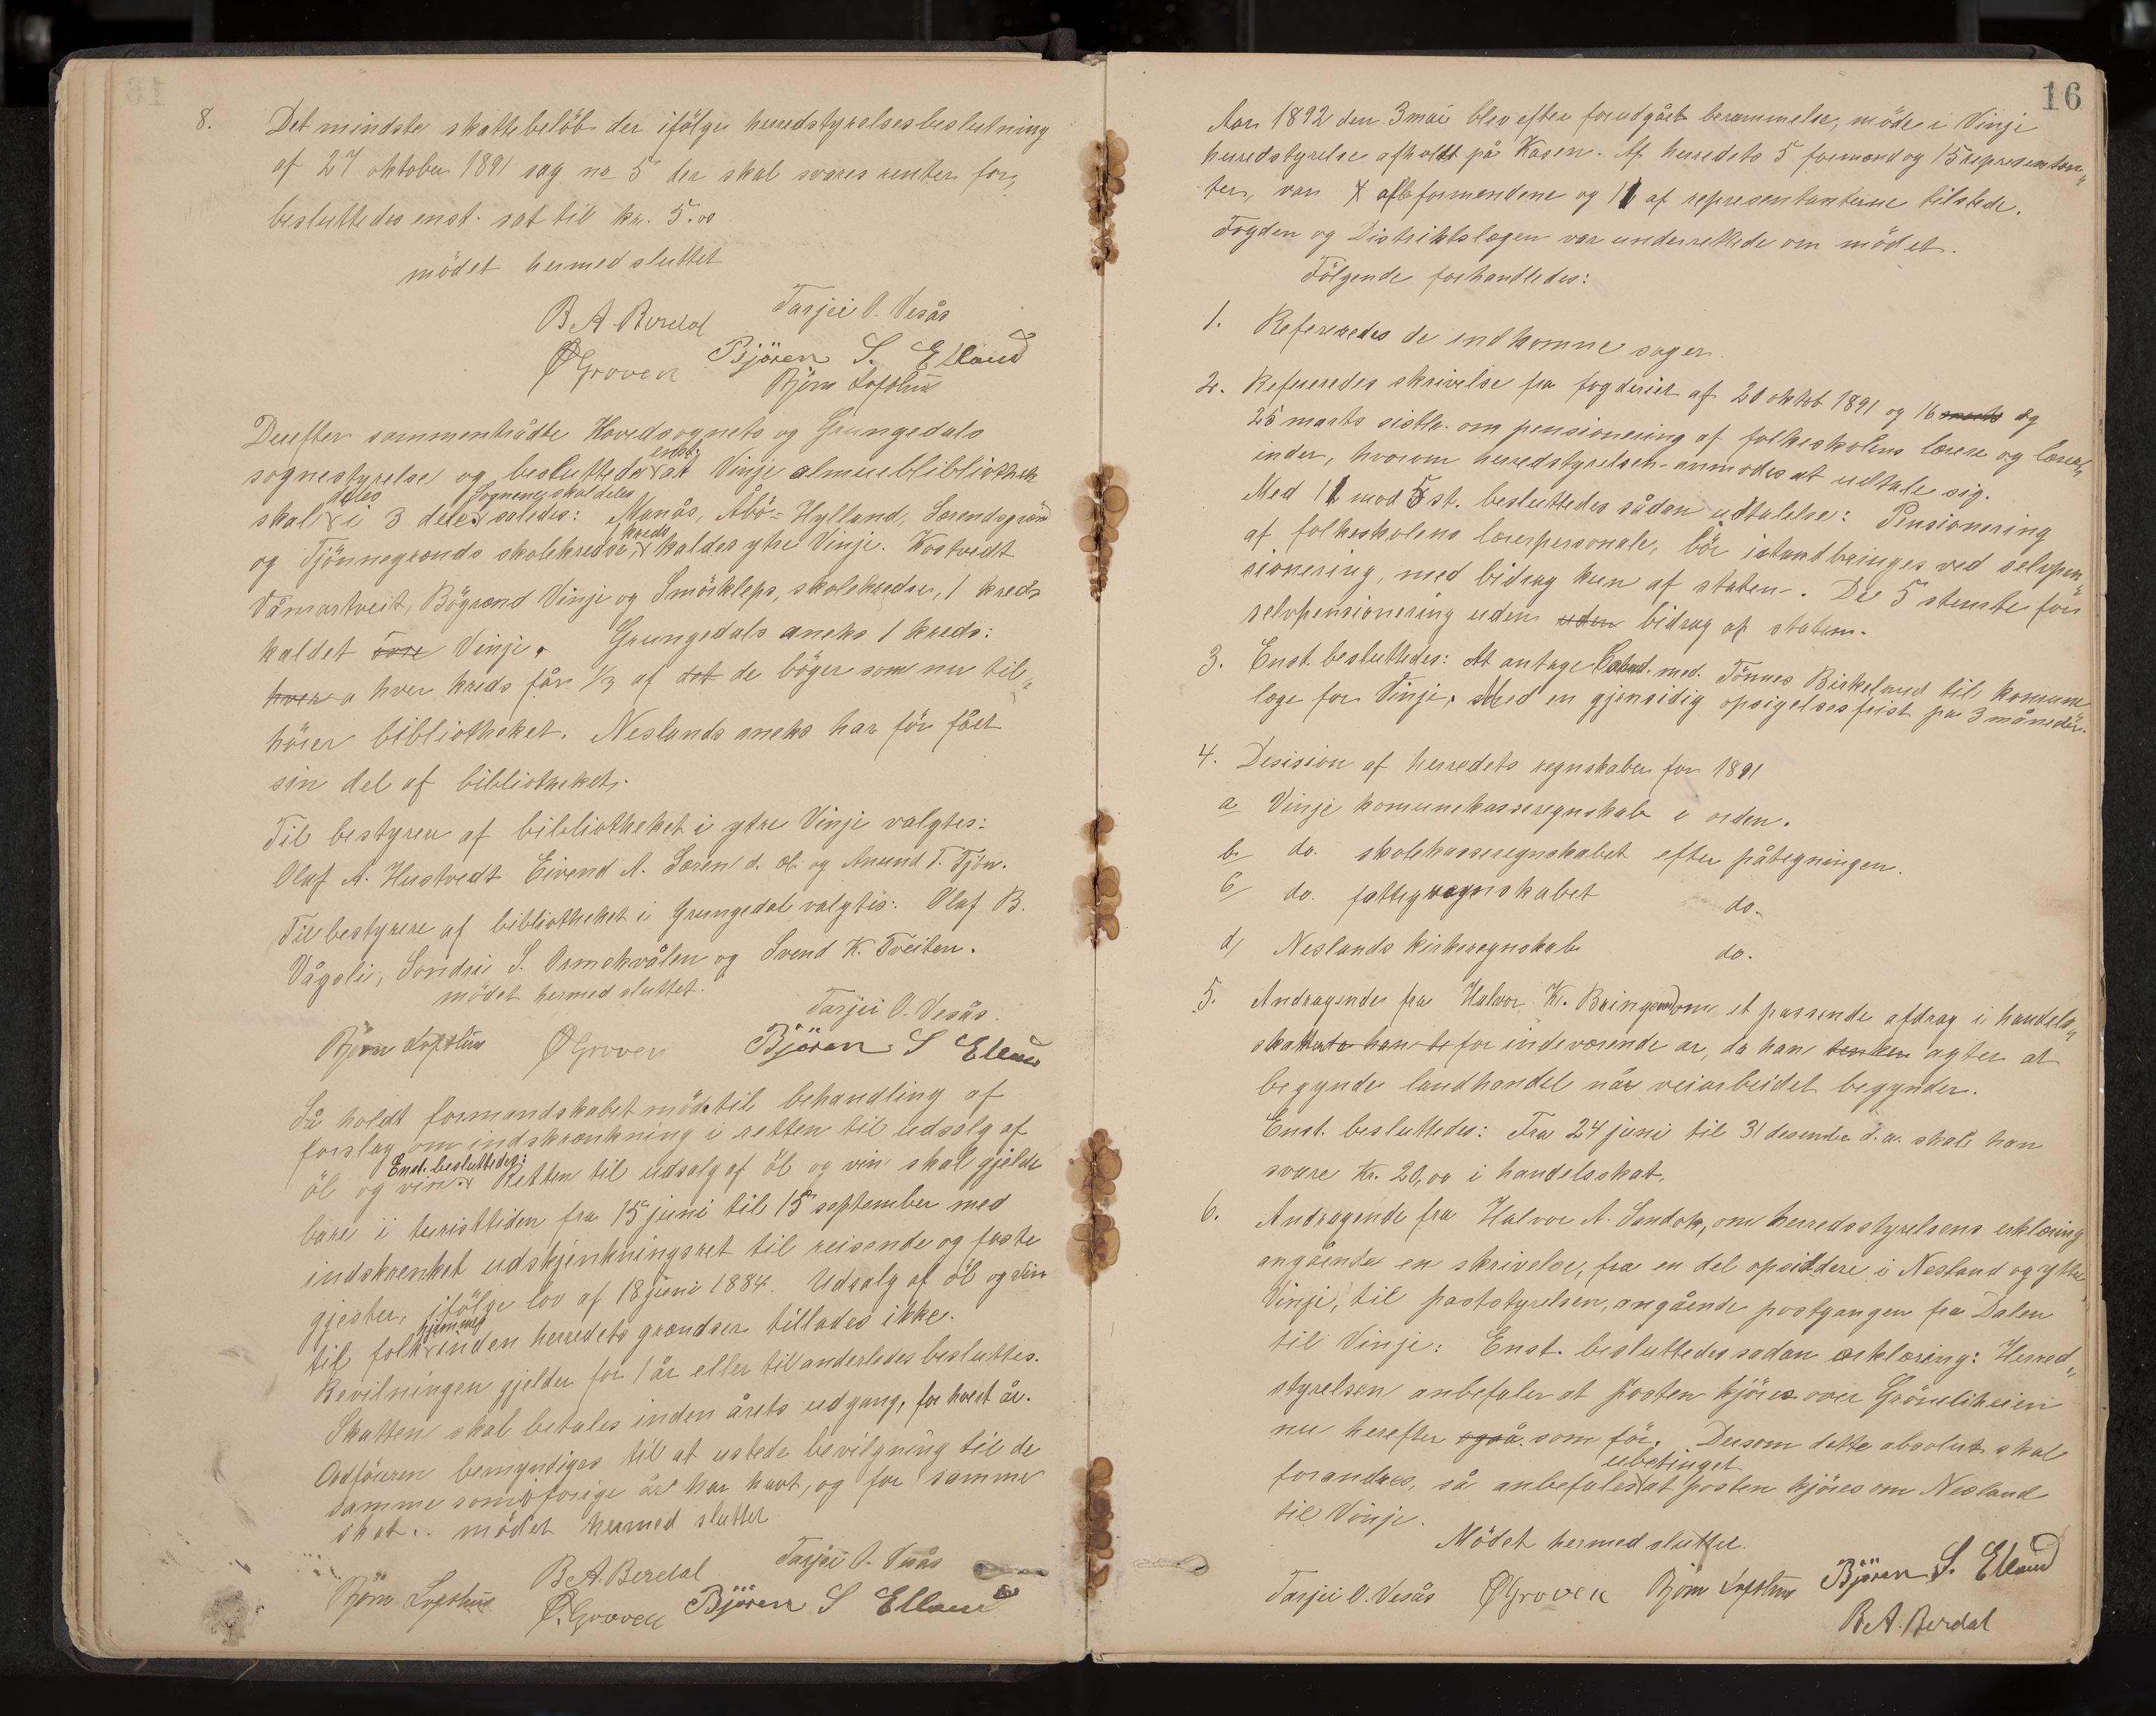 8. Det mindste skattebelöb der ifölge herredstyrelsesbeslutning
af 27 oktober 1891 sag no 5 der skal svares renter for,
besluttedes enst. sat til kr. 5.00
mödet hermed sluttet
B A Berdal Tarjei O. Vesås
O Groven Björen S. Elland
Björn Lofthus
Derefter sammentrådte Hovedsognets og Grungedals
sognestyrelse og besluttedes enst. at Vinje almuebibliothek
skal deles i 3 dele saledes: Sognene skal deles Manås, Åbö- Hylland,
og Tjönnegrends skolekredse kreds kaldes ytre Vinje. Kostvedt
Våmartveit, Bögrend Vinje og Smörklepp, skolekredse, 1 kreds
kaldet övre Vinje. Grungedals aneks 1 kreds:
hver a hver kreds får 1/3 af det de böger som nu til„
hörer bibliotheket. Neslands aneks har för fået
sin del af bibliotheket.
Til bestyrere af bibliotheket i ytre Vinje valgtes:
Olaf A. Hustvedt Eivend A. Lœren d. œl. og Anund T. Tjön.
Til bestyrere af bibliotheket i Grungedal valgtes: Olaf B.
Vågslie, Sondrei S. Ormekvålen og Svend K. Tveiten.
mödet hermed sluttet.
Tarjei O. Vesås.
Björn Lofthus O Groven Björen S Elland
Så holdt formandskabet möde til behandling af
forslag om indskrænkning i retten til udsalg af
öl og vin. Enst. besluttedes: Retten til udsalg af öl og vin skal gjelde
bare i turisttiden fra 15 juni til 15 september med
indskrenket udskjenkningsret til reisende og faste
gjester, ifölge lov af 18 juni 1884. Udsalg af öl og vin
til folk hjemme inden herredets grændser tillades ikke.
Bevilningen gjelder for 1 år eller til anderledes besluttes.
Skatten skal betales inden årets udgang, for hvert år.
Ordföreren bemyndiges til at ustede bevilgning til de
samme som i forige år har havt, og for samme
skat.. mödet hermed sluttet
B A. Berdal Tarjei O. Vesås
Björn Lofthus O. Groven Björen S Elland
16
Aar 1892 den 3 mai blev efter forudgået berammelse, möde i Vinje
herredstyrelse afholdt på Kasen. Af herredets 5 formænd og 15 representan„
ter, var 4 af formendene og 11 af representanterne tilstede.
Fogden og Distriktslægen var underrettede om mödet.
Fölgende forhandledes:
1. Refereredes de indkomne sager.
2. Refereredes skrivelse fra fogderiet af 20 oktob 1891 og 16 marts og
25 marts sistl. om pensionering af folkeskolens lærere og lærer„
inder, hvorom herredstyrelsen anmodes at udtale sig.
Med 11 mod 5 st. besluttedes sådan udtalelse: Pensionering
af folkeskolens lærerpersonale, bör istandbringes ved selvpen„
sionering, med bidrag kun af staten. De 5 stemte for
selvpensionering uden uden bidrag af staten.
3. Enst. besluttedes: At antage Cand. med. Tönnes Birkeland til komune
læge for Vinje, med en gjensidig opsigelsesfrist på 3 måneder.
4. Desision af herredets regnskaber for 1891
a Vinje komunekasseregnskab i orden.
b do. skolekasseregnskabet efter påtegningen.
c do. fattigregnskabet do.
d Neslands kirkeregnskab do.
5. Andragende fra Halvor K. Bringen om et passende afdrag i handels„
skatten han for indeværende ar, da han tenker agter at
begynde landhandel når veiarbeidet begynder.
Enst. besluttedes: Fra 24 juni til 31 desember d. a. skal han
svare Kr. 20,00 i handelsskat.
6. Andragende fra Halvor A. Sandok, om herredsstyrelsens erklæring
angående en skrivelse, fra en del opsiddere i Nesland og ytre
Vinje, til poststyrelsen, angående postgangen fra Dalen
til Vinje: Enst. besluttedes sadan erklæring: Herred„
styrelsen anbefaler at posten kjöres over Grönliheien
nu herefter også som för. Dersom dette absolut skal
forandres, så anbefales ubetinget at posten kjöres om Nesland
til Vinje.
Mödet hermed sluttet.
Tarjei O. Vesås O Groven Björn Lofthus Björen S. Elland
B. A. Berdal